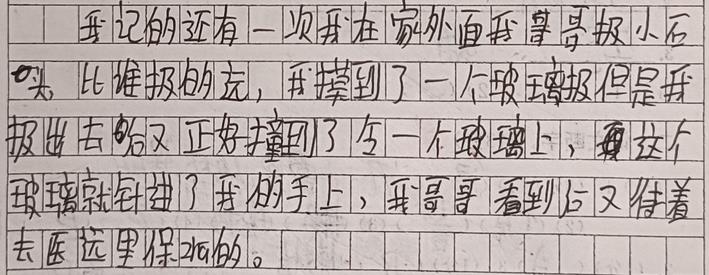 我记的还有一次我在家外面我哥哥扱小石
头,比谁扱的远,我摸到了一个玻璃扱但是我
扱出去哈又正好撞到了令一个玻璃上,这个
玻璃就钎进了我的手上,我哥哥看到后又待着
去医远里保的。